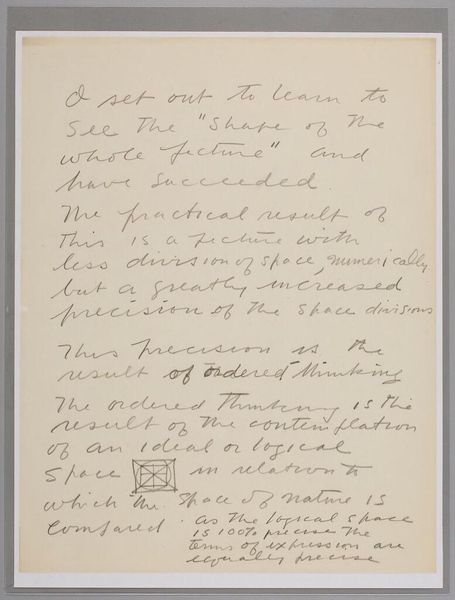 I set out to learn to
see the "shape of the
whole picture" and
have succeeded.
The practical result of
this is a picture with
less division of space, numerically
but a greatly increased
precision of the space divisions
This precision is the
result of ordered thinking
The ordered thinking is the
result of the contemplation
of an ideal or logical
space in relation to
which the space of nature is
compared. as the logical space
is 100% precise the
terms of expression are
equally precise